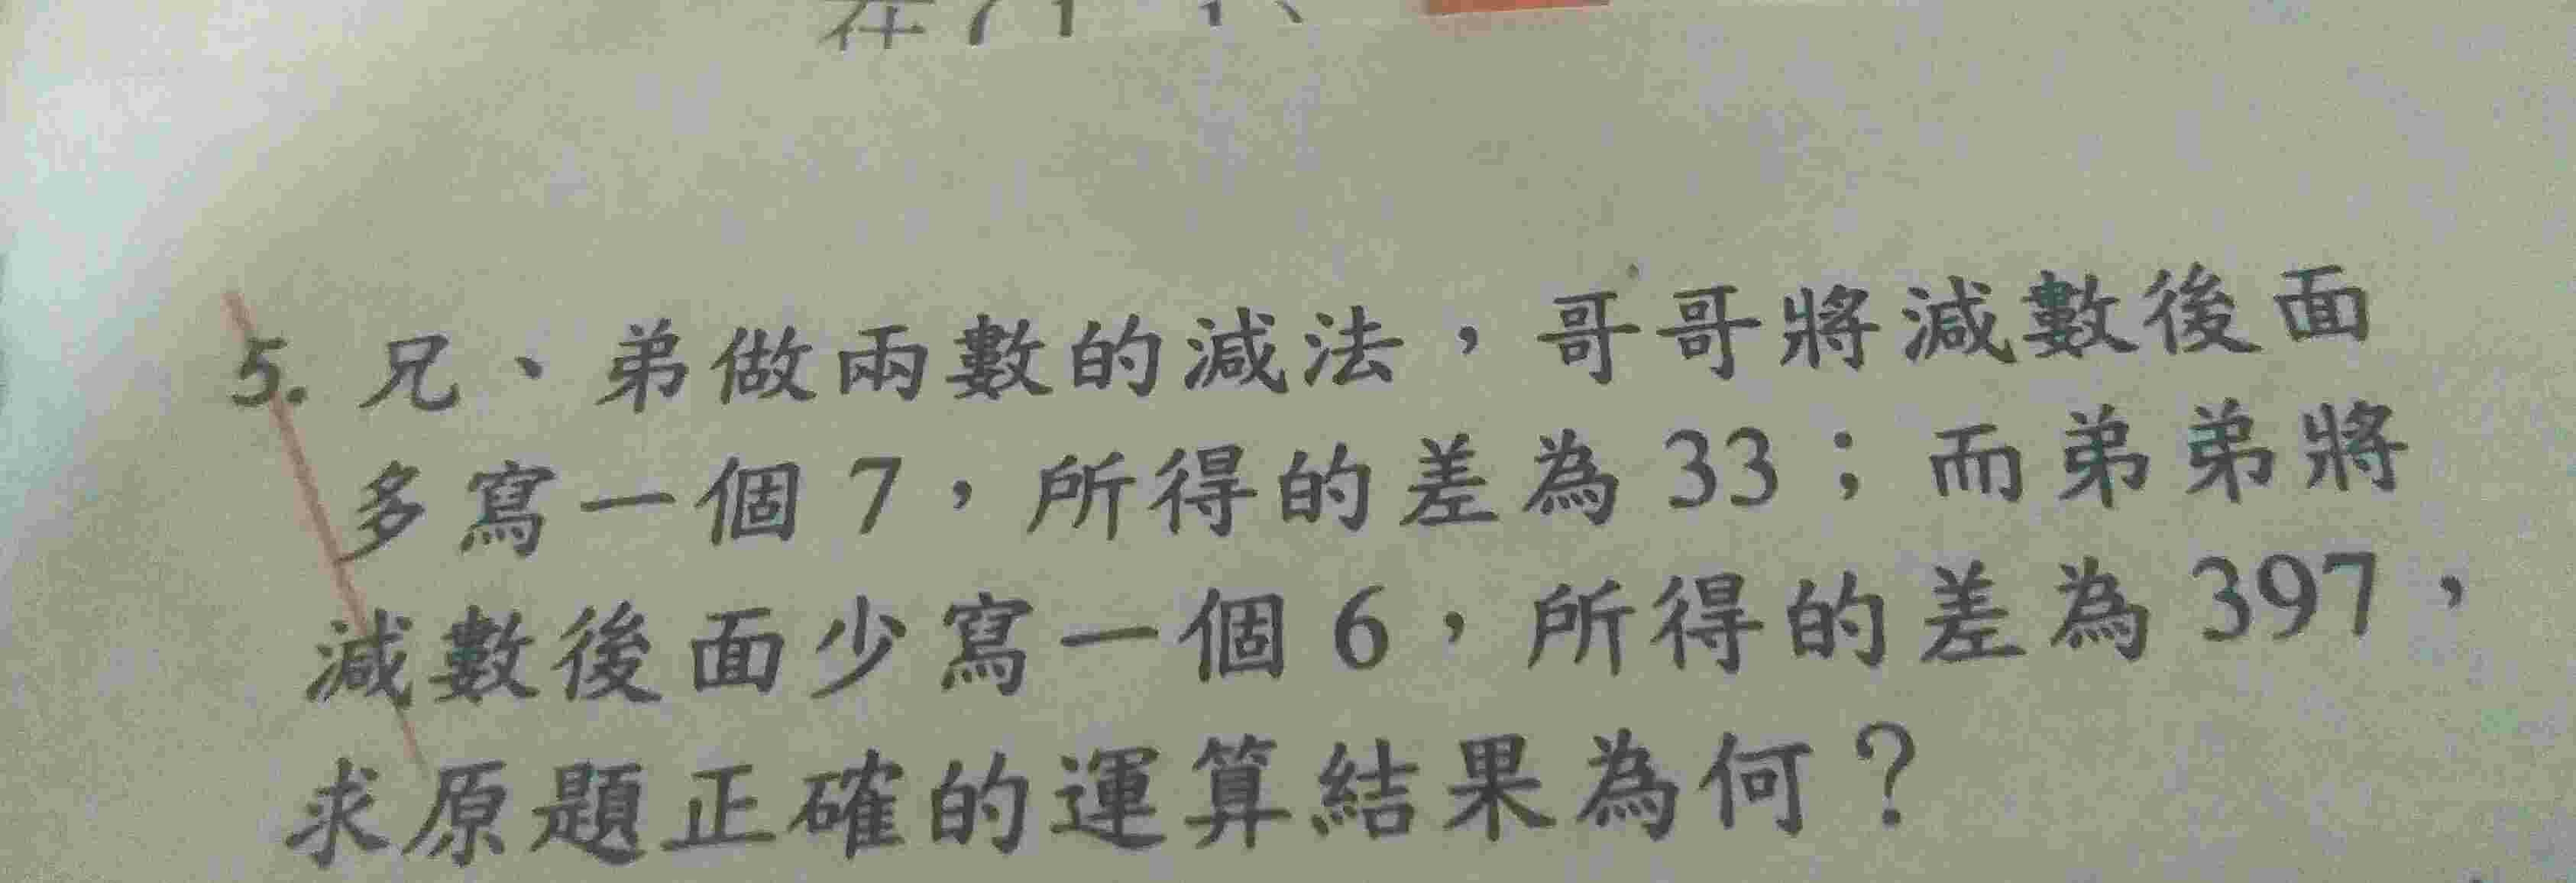 5. 兄、弟做兩數的減法，哥哥將減數後面
多寫一個 7，所得的差為 33；而弟弟將
減數後面少寫一個 6，所得的差為 397，
求原題正確的運算結果為何？